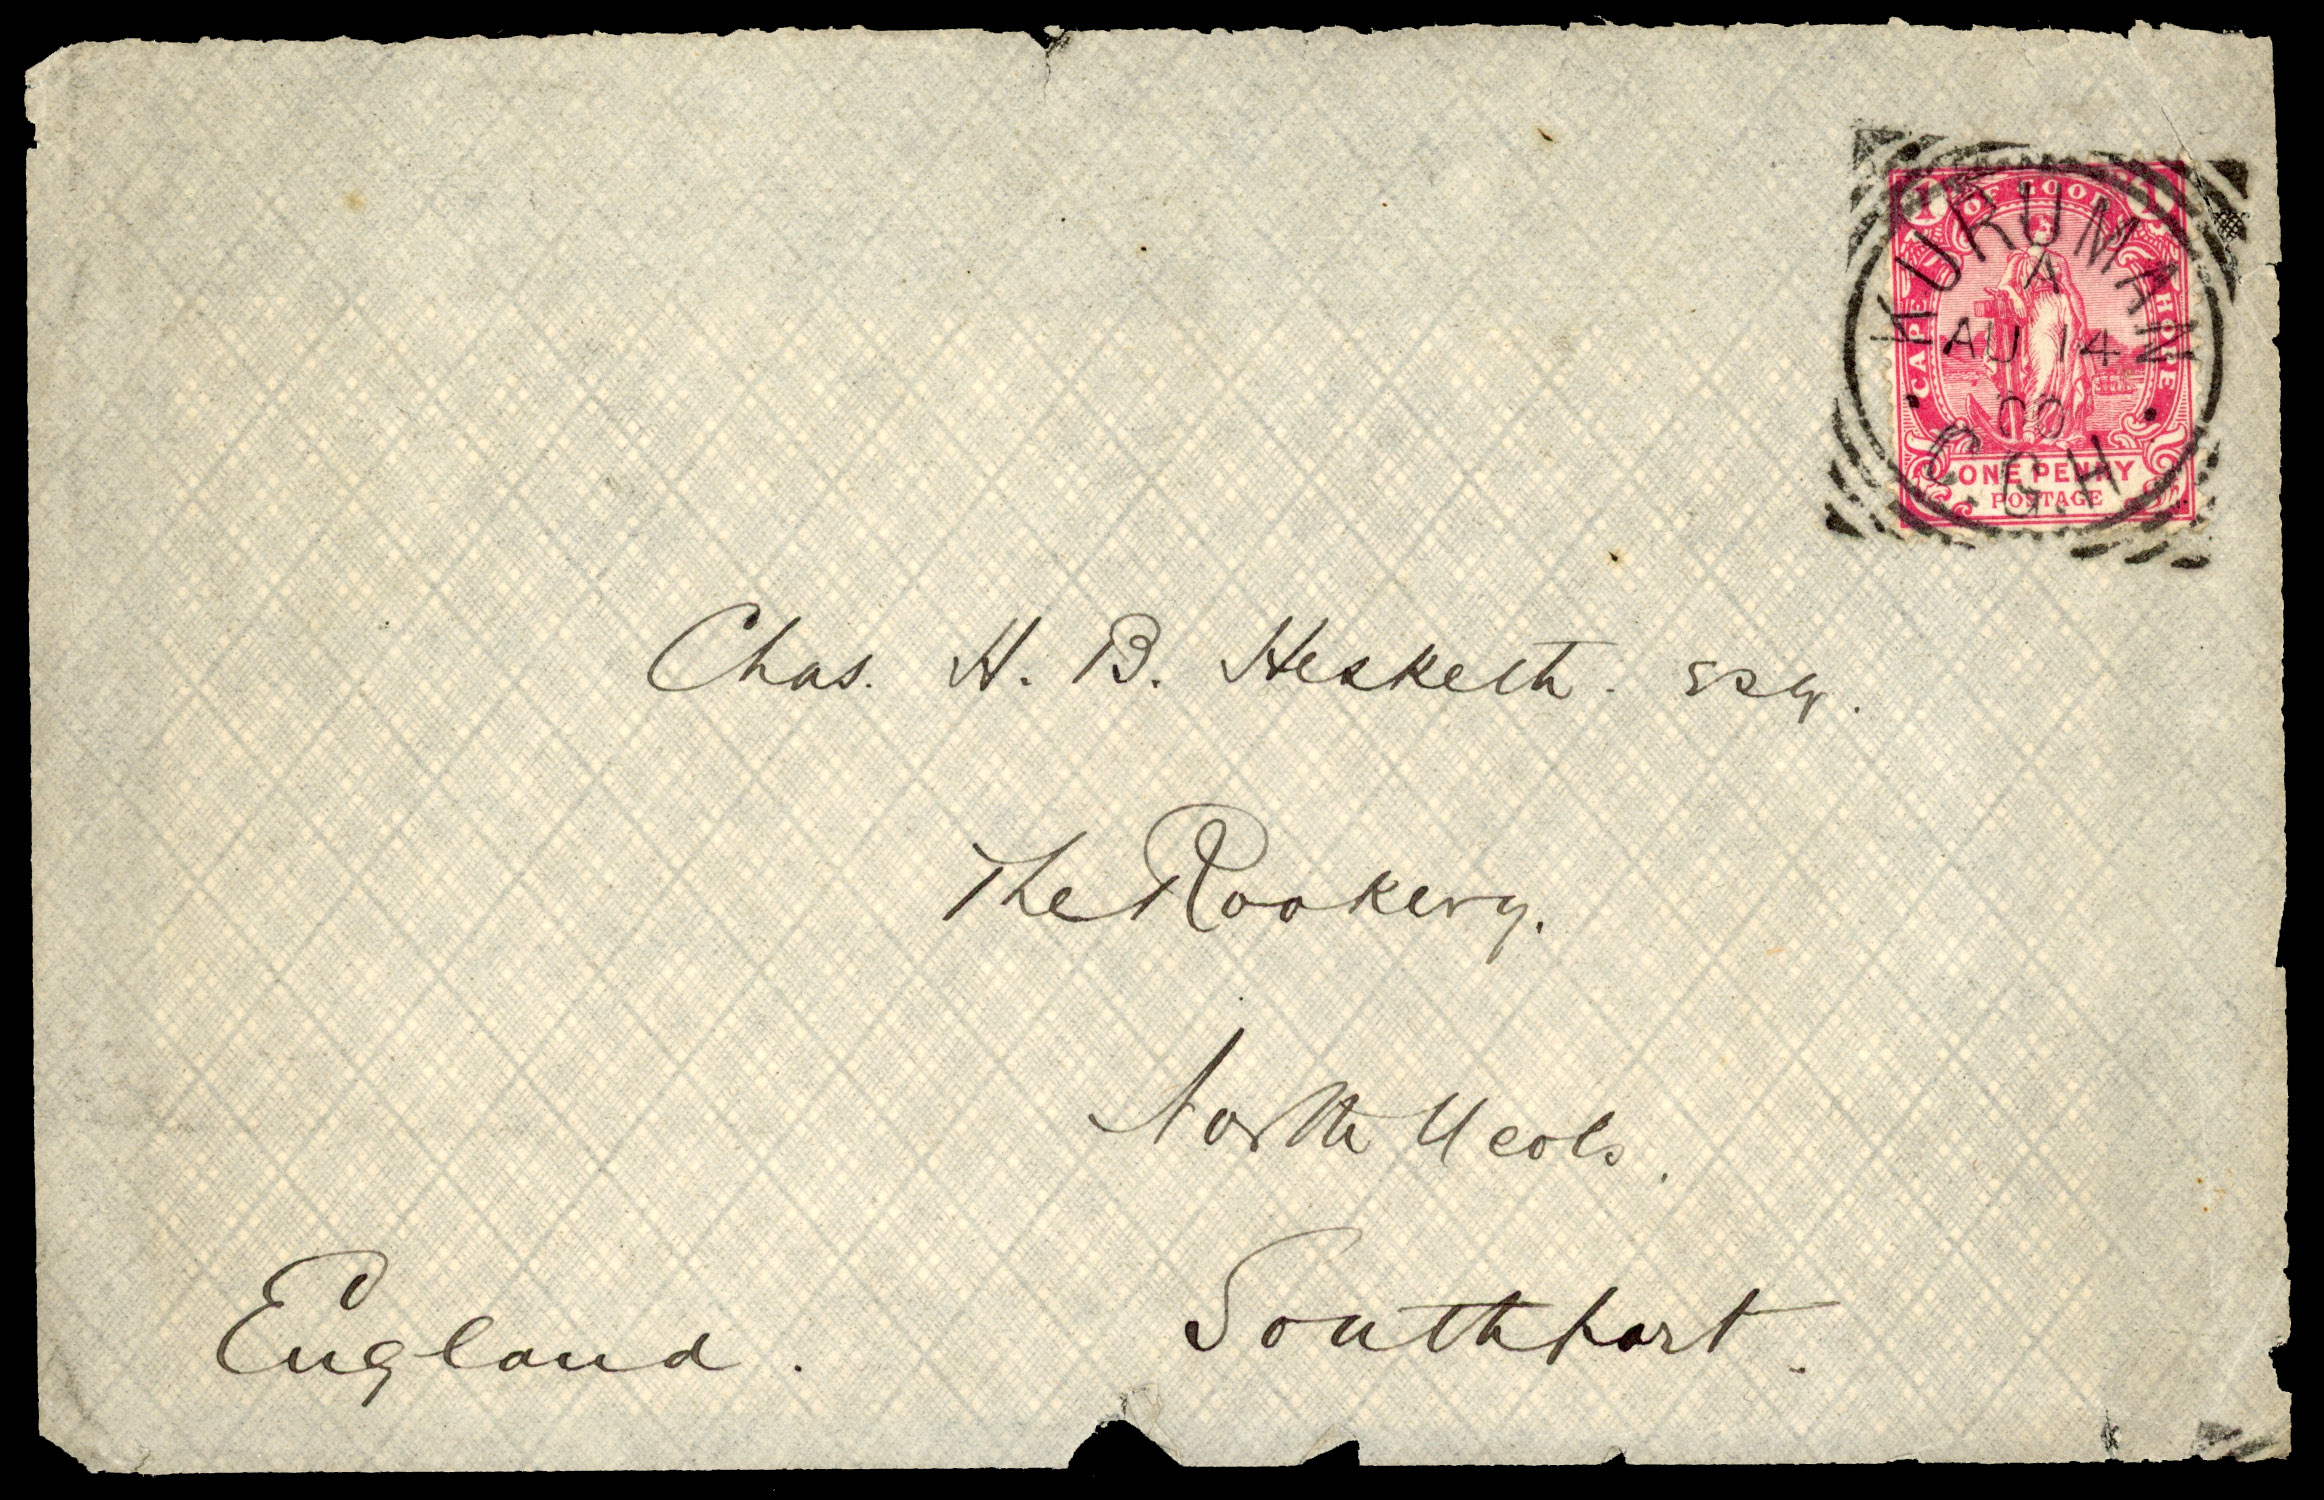 1 1
CAPE OF GOOD HOPE
ONE PENNY
POSTAGE
KURUMAN
A
AU 14
00
C.G.H
Chas. H. B. Hesketh. Esq.
The Rookery.
North Meols.
Southport.
England.